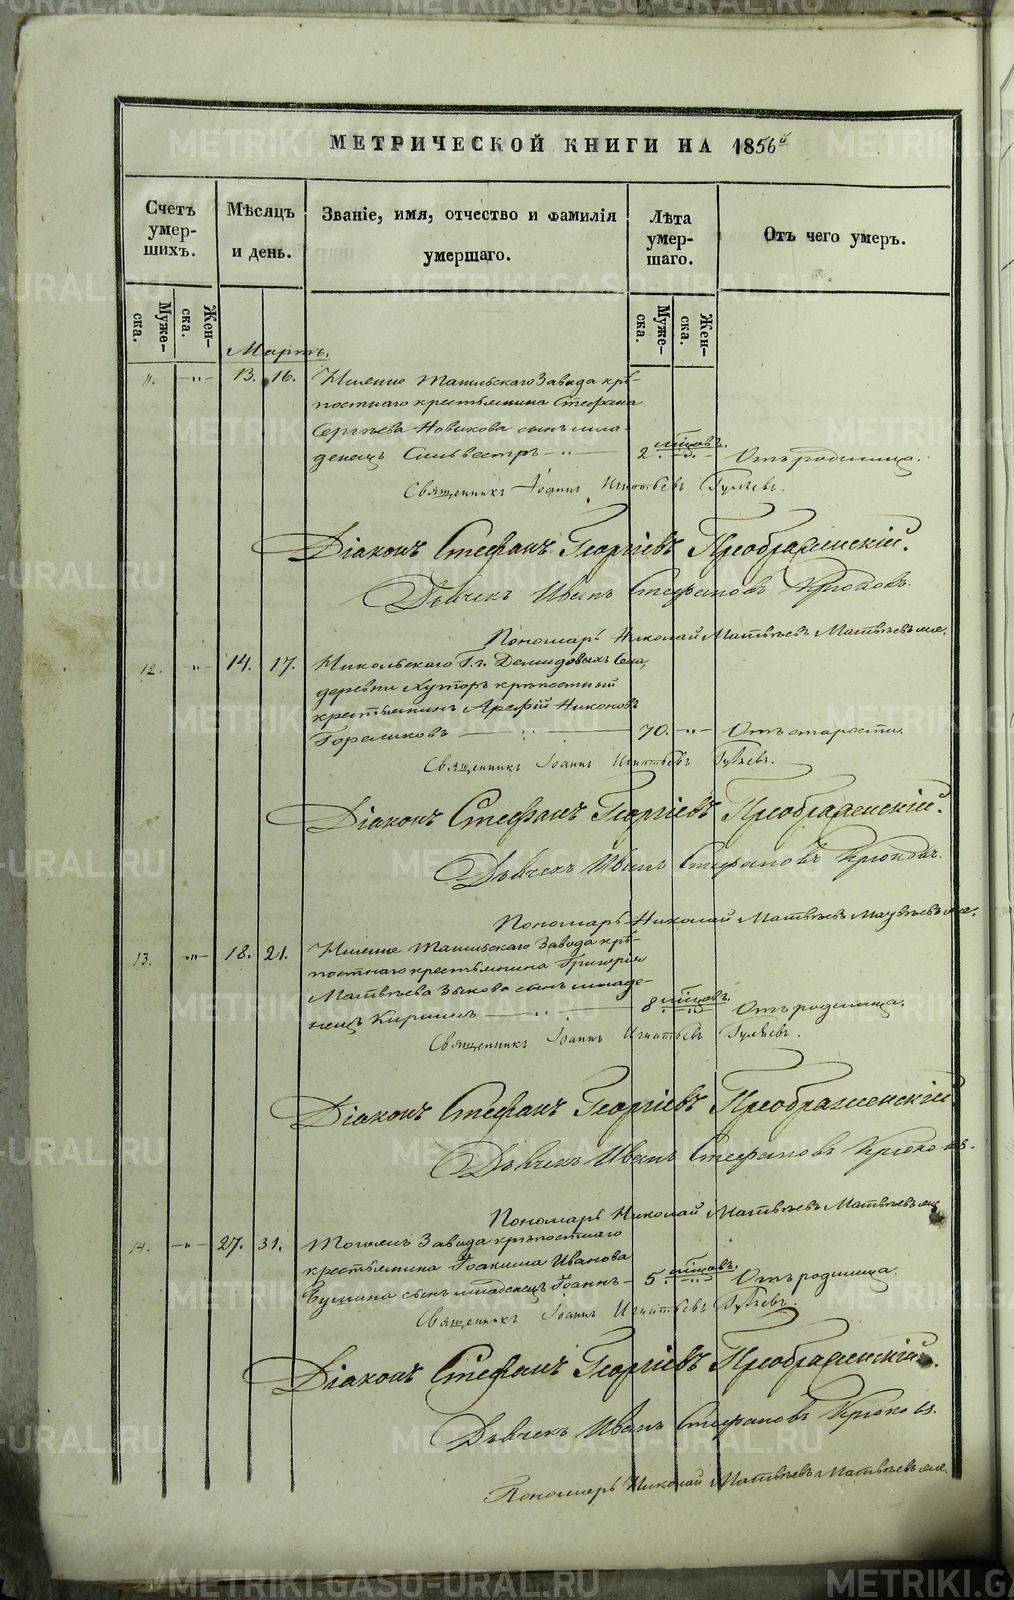 МЕТРИЧЕСКОЙ КНИГИ НА 1856й
Счетъ умер-шихъ.
Мѣсяцъ и день.
Званіе, имя, отчество и фамилія умершаго.
Лѣта умер-шаго.
Отъ чего умеръ.
Муже-ска.
Жен-ска.
Муже-ска.
Жен-ска.
Мартъ.
11. —"— 13. 16. Нижне Тагильскаго Завода крѣ-
постнаго крестьянина Стефана
Сергѣева Новикова сынъ мла-
денецъ Сильвестръ —"— 2 мѣсяцовъ. Отъ родимца.
Священникъ Іоаннъ Игнатьевъ
Діаконъ Стефанъ Георгіевъ Преображенскій.
Дьячекъ Иванъ Стефановъ Крюковъ.
Пономарь Николай Матвѣевъ Матвѣевъ
12. —"— 14. 17. Никольскаго Г.г. Демидовыхъ Села,
деревни Хуторъ крѣпостный
крестьянинъ Арефій Никоновъ
Гореликовъ —"— 70. —"— Отъ старости.
Священникъ Іоаннъ Игнатьевъ
Діаконъ Стефанъ Георгіевъ Преображенскій.
Дьячекъ Иванъ Стефановъ Крюковъ.
Пономарь Николай Матвѣевъ Матвѣевъ
13. —"— 18. 21. Нижне Тагильскаго Завода крѣ-
постнаго крестьянина Григорія
Матвѣева Зыкова сынъ младе-
нецъ Кириллъ —"— 8 мѣсяцовъ. Отъ родимца.
Священникъ Іоаннъ Игнатьевъ
Діаконъ Стефанъ Георгіевъ Преображенскій.
Дьячекъ Иванъ Стефановъ Крюковъ.
Пономарь Николай Матвѣевъ Матвѣевъ
14. —"— 27. 31. Тогожъ Завода крѣпостнаго
крестьянина Іоакима Иванова
сынъ младенецъ Іоаннъ — 5. мѣсяцовъ. Отъ родимца.
Священникъ Іоаннъ Игнатьевъ
Діаконъ Стефанъ Георгіевъ Преображенскій.
Дьячекъ Иванъ Стефановъ Крюковъ.
Пономарь Николай Матвѣевъ Матвѣевъ
METRIKI.GASO-URAL.RU